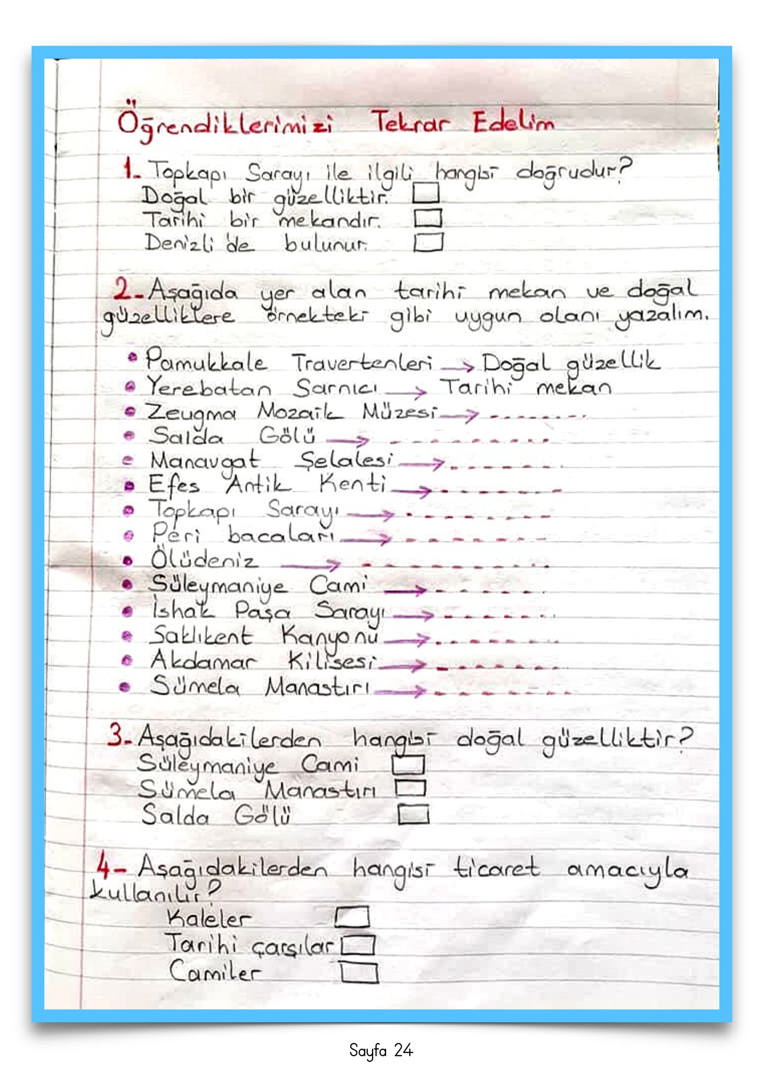 Öğrendiklerimizi Tekrar Edelim
1- Topkapı Sarayı ile ilgili hangisi doğrudur?
Doğal bir güzelliktir.
Tarihi bir mekandır.
Denizli'de bulunur.
2- Aşağıda yer alan tarihi mekan ve doğal
güzelliklere örnekteki gibi uygun olanı yazalım.
• Pamukkale Travertenleri → Doğal güzellik
• Yerebatan Sarnıcı → Tarihi mekan
• Zeugma Mozaik Müzesi → ........
• Salda Gölü → ..........
• Manavgat Şelalesi → ........
• Efes Antik Kenti → .........
• Topkapı Sarayı → .........
• Peri bacaları → .........
• Ölüdeniz → ..........
• Süleymaniye Cami → ........
• İshak Paşa Sarayı → ........
• Saklıkent Kanyonu → ........
• Akdamar Kilisesi → ........
• Sümela Manastırı → .........
3- Aşağıdakilerden hangisi doğal güzelliktir?
Süleymaniye Cami
Sümela Manastırı
Salda Gölü
4- Aşağıdakilerden hangisi ticaret amacıyla
kullanılır?
Kaleler
Tarihi çarşılar
Camiler
Sayfa 24